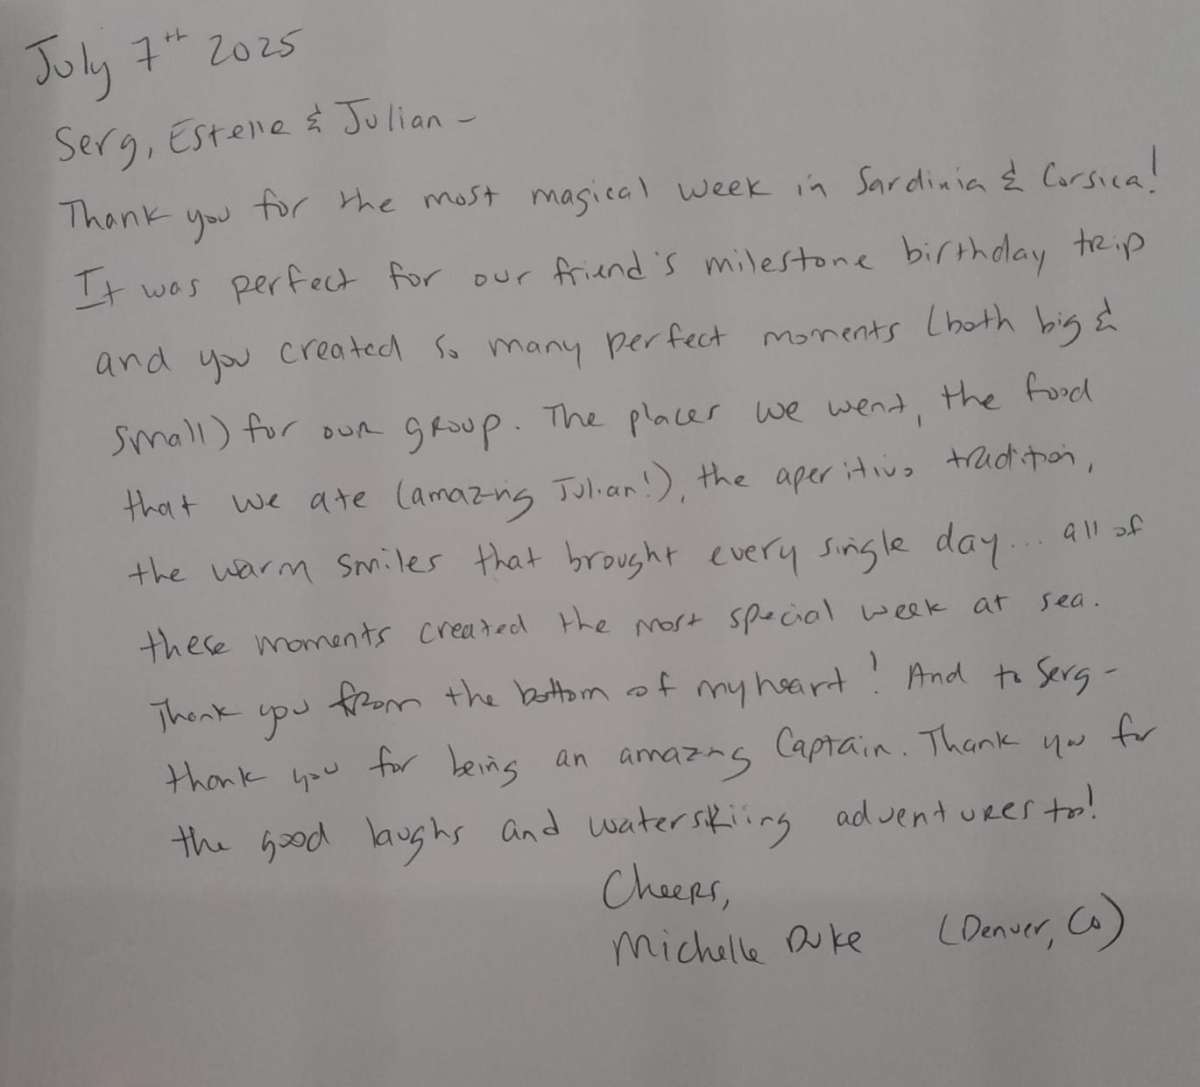 July 7th 2025
Serg, Estelle & Julian -
Thank you for the most magical week in Sardinia & Corsica!
It was perfect for our friend's milestone birthday trip
and you created so many perfect moments (both big &
small) for our group. The places we went, the food
that we ate (amazing Julian!), the aperitivo tradition,
the warm smiles that brought every single day... all of
these moments created the most special week at sea.
Thank you from the bottom of my heart! And to Serg -
thank you for being an amazing Captain. Thank you for
the good laughs and waterskiing adventures too!
Cheers,
Michelle Duke (Denver, Co)